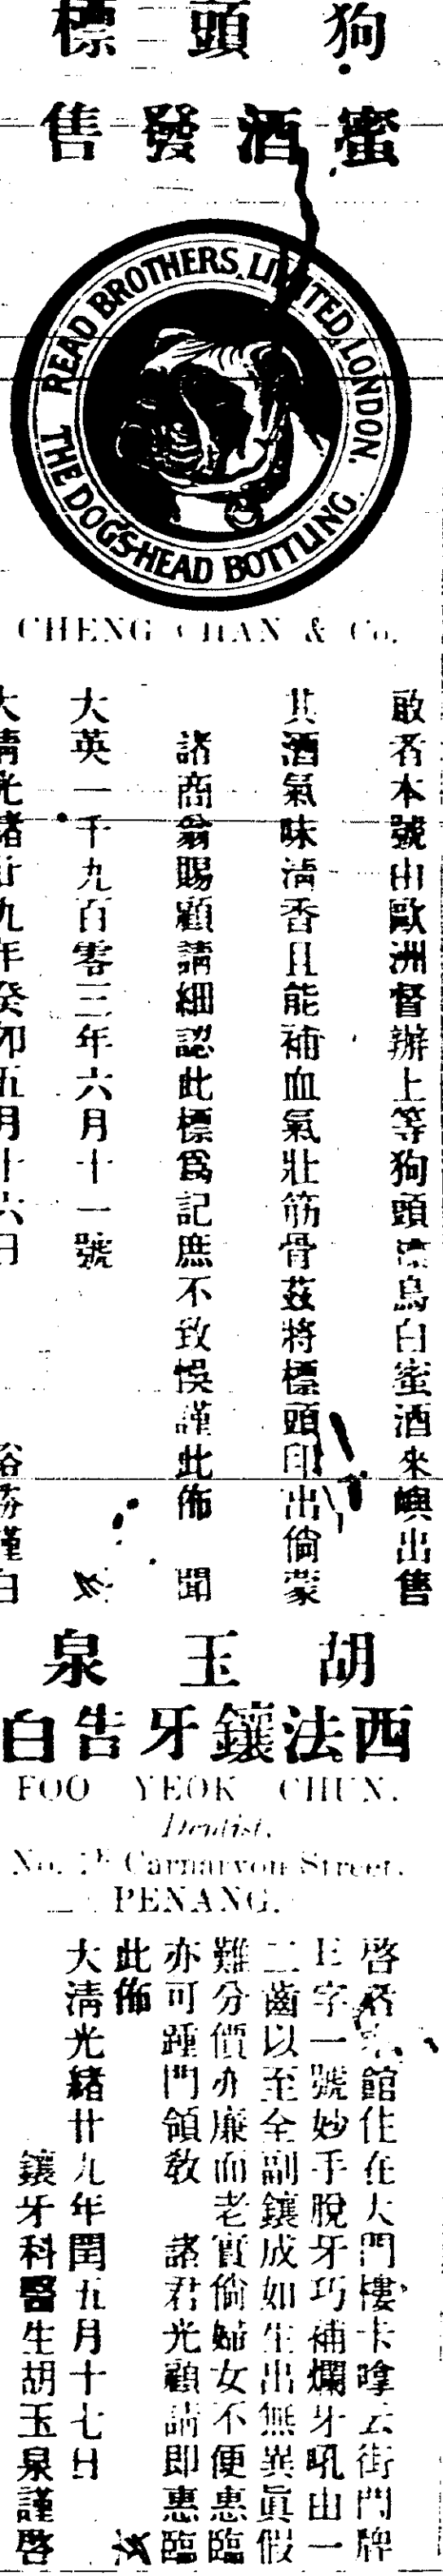 狗頭標
蜜酒發售
READ BROTHERS, LIMITED, LONDON,
THE DOG'S HEAD BOTTLING.
CHENG CHAN & Co.
敢者本號由歐洲督辦上等狗頭 烏白蜜酒來嶼出售
其酒氣味淸香且能補血氣壯筋骨茲將標頭印出倘蒙
諸商翁賜顧請細認此標爲記庶不致悞謹此佈 聞
大英一千九百零三年六月十一號
大清光緒廿九年癸卯五月十六日 裕 謹白
胡玉泉
西法鑲牙告白
FOO YEOK CHUN.
Dentist.
No. Carnarvon Street.
PENANG.
啓者 館住在大門樓卡嗱云街門牌
E字一號妙手脫牙巧補爛牙吼由一
二齒以至全副鑲成如生出無異眞假
難分價亦廉而老實倘婦女不便惠臨
亦可踵門領敎 諸君光顧請即惠臨
此佈
大淸光緒廿九年閏五月十七日
鑲牙科醫生胡玉泉謹啓